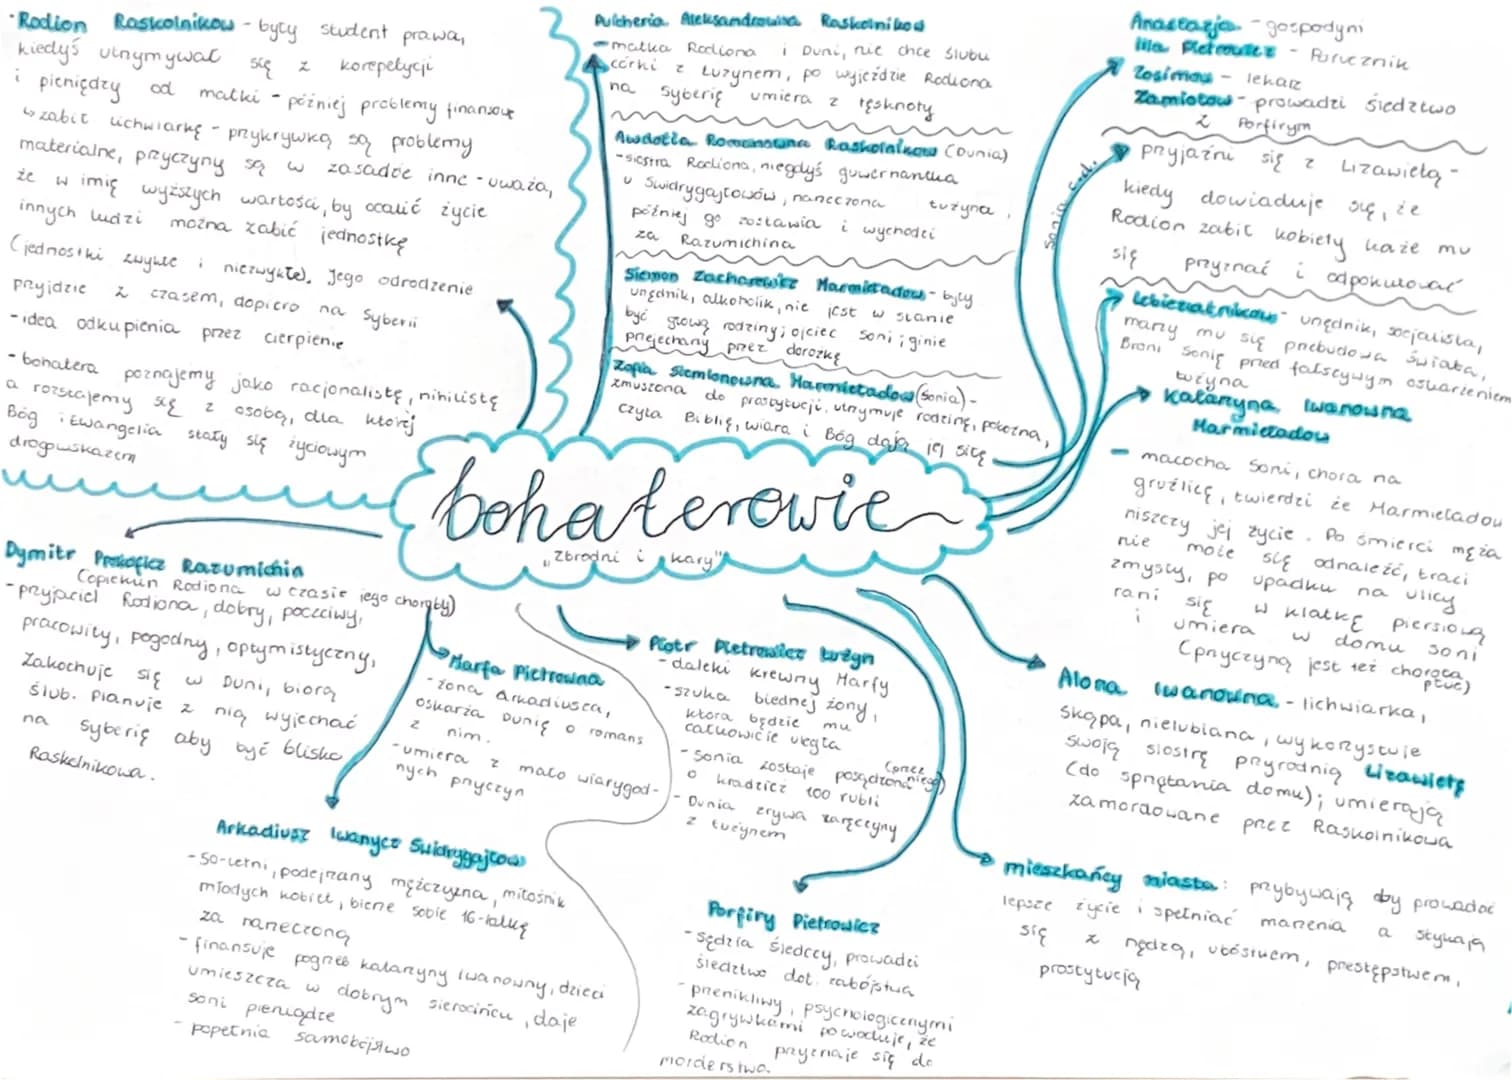 Rodion Raskolnikow - były student prawa,
kiedyś utrzymywał się z korepetycji
i pieniędzy od matki - później problemy finansowe
↳ zabił lichwiarkę - przykrywką są problemy
materialne, przyczyny są w zasadzie inne - uważa,
że w imię wyższych wartości, by ocalić życie
innych ludzi można zabić jednostkę
(jednostki zwykłe i niezwykłe). Jego odrodzenie
przyjdzie z czasem, dopiero na Syberii
- idea odkupienia przez cierpienie
- bohatera poznajemy jako racjonalistę, nihilistę
a rozstajemy się z osobą, dla której
Bóg i Ewangelia stały się życiowym
drogowskazem
Pulcheria Aleksandrowna Raskolnikow
- matka Rodiona i Duni, nie chce ślubu
córki z Łużynem, po wyjeździe Rodiona
na Syberię umiera z tęsknoty
Awdotia Romanowna Raskolnikow (Dunia)
- siostra Rodiona, niegdyś guwernantka
u Świdrygajłowów, narzeczona Łużyna,
później go zostawia i wychodzi
za Razumichina
Siemon Zacharowicz Marmieładow - były
urzędnik, alkoholik, nie jest w stanie
być głową rodziny; ojciec Soni; ginie
przejechany przez dorożkę
Zofia Siemionowna Marmieładow (Sonia) -
zmuszona do prostytucji, utrzymuje rodzinę, pokorna,
czyta Biblię, wiara i Bóg dają jej siłę
Anastazja - gospodyni
Ilia Pietrowicz - Porucznik
Zosimow - lekarz
Zamiotow - prowadzi śledztwo
z Porfirym
Sonia c.d.
przyjaźni się z Lizawietą -
kiedy dowiaduje się, że
Rodion zabił kobiety każe mu
się przyznać i odpokutować
Lebieziatnikow - urzędnik, socjalista,
marzy mu się przebudowa świata,
Broni Sonię przed fałszywym oskarżeniem
Łużyna
Katarzyna Iwanowna
Marmieładow
- macocha Soni, chora na
gruźlicę, twierdzi że Marmieładow
niszczy jej życie. Po śmierci męża
nie może się odnaleźć, traci
zmysły, po upadku na ulicy
rani się w klatkę piersiową
i umiera w domu Soni
(przyczyną jest też choroba
płuc)
bohaterowie
"Zbrodni i kary"
Dymitr Prokoficz Razumichin
(opiekun Rodiona w czasie jego choroby)
- przyjaciel Rodiona, dobry, poczciwy,
pracowity, pogodny, optymistyczny,
Zakochuje się w Duni, biorą
ślub. Planuje z nią wyjechać
na Syberię aby być blisko
Raskolnikowa.
Marfa Pietrowna
- żona Arkadiusza,
oskarża Dunię o romans
z nim.
- umiera z mało wiarygod-
nych przyczyn
Arkadiusz Iwanycz Świdrygajłow
- 50-letni, podejrzany mężczyzna, miłośnik
młodych kobiet, bierze sobie 16-latkę
za narzeczoną
- finansuje pogrzeb Katarzyny Iwanowny, dzieci
umieszcza w dobrym sierocińcu, daje
Soni pieniądze
- popełnia samobójstwo
Piotr Pietrowicz Łużyn
- daleki krewny Marfy
- szuka biednej żony,
która będzie mu
całkowicie uległa
- Sonia zostaje posądzona (przez niego)
o kradzież 100 rubli
- Dunia zrywa zaręczyny
z Łużynem
Porfiry Pietrowicz
- sędzia śledczy, prowadzi
śledztwo dot. zabójstwa
- przenikliwy, psychologicznymi
zagrywkami powoduje, że
Rodion przyznaje się do
morderstwa.
Alona Iwanowna - lichwiarka,
skąpa, nielubiana, wykorzystuje
swoją siostrę przyrodnią Lizawietę
(do sprzątania domu); umierają
zamordowane przez Raskolnikowa
mieszkańcy miasta: przybywają aby prowadzić
lepsze życie i spełniać marzenia a stykają
się z nędzą, ubóstwem, przestępstwem,
prostytucją